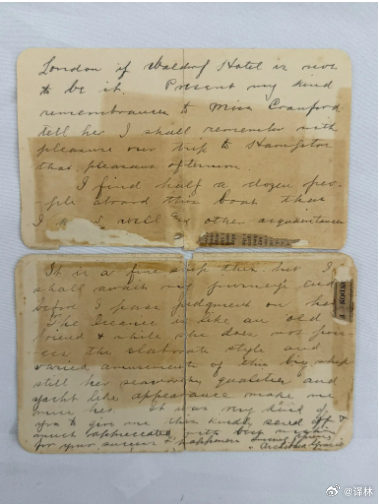 London if Waldorf Hotel is nice
to be it. Present my kind
remembrances to Miss Cranford
tell her I shall remember with
pleasure our trip to Hampton
that pleasant afternoon.
I find half a dozen peo-
ple aboard this boat that
I other acquaintances
It is a fine ship this but I
shall await my journeys end
before I pass judgment on her
The Oceanic is like an old
friend & while she does not
the elaborate style and
varied amusements of this big ship
still her seaworthy qualities and
yacht like appearance make me
miss her. It was very kind of
you to give me this kindly send off &
much appreciated with best wishes
for your success & happiness
Archibald Gracie
@译林